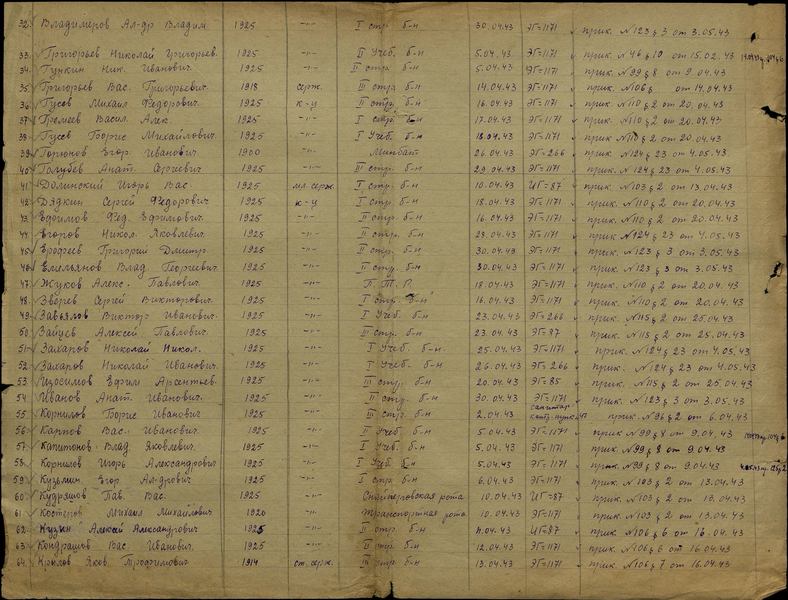 32. Владимеров Ал-др Владим. 1925 -"- I стр. б-н 30.04.43 ЭГ-1171 прик. №123 § 3 от 3.05.43
33. Григорьев Николай Григорьев. 1925 -"- II Учеб. б-н 5.04.43 ЭГ-1171 прик. №46 § 10 от 15.02.43
34. Гункин Ник. Иванович. 1925 -"- II стр. б-н 5.04.43 ЭГ=1171 прик. №99 § 8 от 9.04.43
35. Григорьев Вас. Григорьевич. 1918 серж. III стр. б-н 14.04.43 ЭГ=1171 прик. №106 § от 14.04.43
36. Гусев Михаил Федорович. 1925 к-ц II стр. б-н 16.04.43 ЭГ=1171 прик. №110 § 2 от 20.04.43
37. Гремеев Васил. Алек. 1925 -"- I стр. б-н 17.04.43 ЭГ=1171 прик. №110 § 2 от 20.04.43
38. Гусев Георгие Михайлович. 1925 -"- I Учеб. б-н 18.04.43 ЭГ=1171 прик. №110 § 2 от 20.04.43
39. Горюнов Егор. Иванович 1900 -"- Минбат 26.04.43 ЭГ=266 прик. №124 § 23 от 4.05.43
40. Голубев Анат. Сергиевич 1925 -"- III стр. б-н 29.04.43 ЭГ=1171 прик. №124 § 23 от 4.05.43
41. Долинский Игорь Вас. 1925 мл. серж. I стр. б-н 10.04.43 ИГ=87 прик. №103 § 2 от 13.04.43
42. Дядкин Сергей Федорович. 1925 к-ц II стр. б-н 18.04.43 ЭГ=1171 прик. №110 § 2 от 20.04.43
43. Ефимов Фед. Ефимович. 1925 -"- II стр. б-н 16.04.43 ЭГ=1171 прик. №110 § 2 от 20.04.43
44. Егоров Никол. Яковлевич. 1925 -"- II стр. б-н 28.04.43 ЭГ=1171 прик. №124 § 23 от 4.05.43
45. Ерофеев Григорий Дмитр. 1925 -"- II стр. б-н 30.04.43 ЭГ=1171 прик. №123 § 3 от 3.05.43
46. Емельянов Влад. Георгиевич. 1925 -"- II стр. б-н 30.04.43 ЭГ=1171 прик. №123 § 3 от 3.05.43
47. Жуков Алекс. Павлович. 1925 -"- П. Т. Р. 18.04.43 ЭГ=1171 прик. №110 § 2 от 20.04.43
48. Зверев Сергей Викторович. 1925 -"- I стр. б-н 16.04.43 ЭГ=1171 прик. №110 § 2 от 20.04.43
49. Завьялов Виктор Иванович. 1925 -"- I Учеб. б-н 23.04.43 ЭГ=266 прик. №115 § 2 от 25.04.43
50. Зайцев Алексей Павлович. 1925 -"- III стр. б-н 23.04.43 ЭГ=87 прик. №115 § 2 от 25.04.43
51. Захаров Николай Никол. 1925 -"- I Учеб. б-н. 25.04.43 ЭГ=1171 прик. №124 § 23 от 4.05.43
52. Захаров Николай Иванович. 1925 -"- I Учеб. б-н 26.04.43 ЭГ=266 прик. №124 § 23 от 4.05.43
53. Изосимов Ефим Арсентьев. 1925 -"- III стр. б-н 20.04.43 ЭГ=85 прик. №115 § 2 от 25.04.43
54. Иванов Анат. Иванович. 1925 -"- II стр. б-н 30.04.43 ЭГ=1171 прик. №123 § 3 от 3.05.43
55. Корнилов Борис Иванович 1925 -"- III стр. б-н 2.04.43 санитар прик. №96 § 2 от 6.04.43
56. Карпов Вас. Иванович. 1925 -"- I Учеб. б-н 5.04.43 ЭГ=1171 прик. №99 § 8 от 9.04.43
57. Капитонов Влад. Яковлевич. 1925 -"- I Учеб. б-н 5.04.43 ЭГ=1171 прик. №99 § 8 от 9.04.43
58. Корнилов Игорь Александрович 1925 -"- I Учеб. б-н 5.04.43 ЭГ=1171 прик. №99 § 8 от 9.04.43
59. Кузьмин Егор. Ал-дрович 1925 -"- I стр. б-н 6.04.43 ЭГ=1171 прик. №103 § 2 от 13.04.43
60. Кудряшов Пав. Вас. 1925 -"- Снайперовская рота 10.04.43 ИГ=87 прик. №103 § 2 от 13.04.43
61. Костеров Михаил Михайлович 1920 -"- Транспортная рота 10.04.43 ЭГ=1171 прик. №103 § 2 от 13.04.43
62. Кузин Алексей Александрович 1925 -"- II стр. б-н 11.04.43 ИГ=87 прик. №106 § 6 от 16.04.43
63. Кондрашов Вас. Иванович. 1925 -"- II стр. б-н 12.04.43 ЭГ=1171 прик. №106 § 6 от 16.04.43
64. Крылов Яков. Трофимович 1914 ст. серж. III стр. б-н 13.04.43 ЭГ=1171 прик. №106 § 7 от 16.04.43